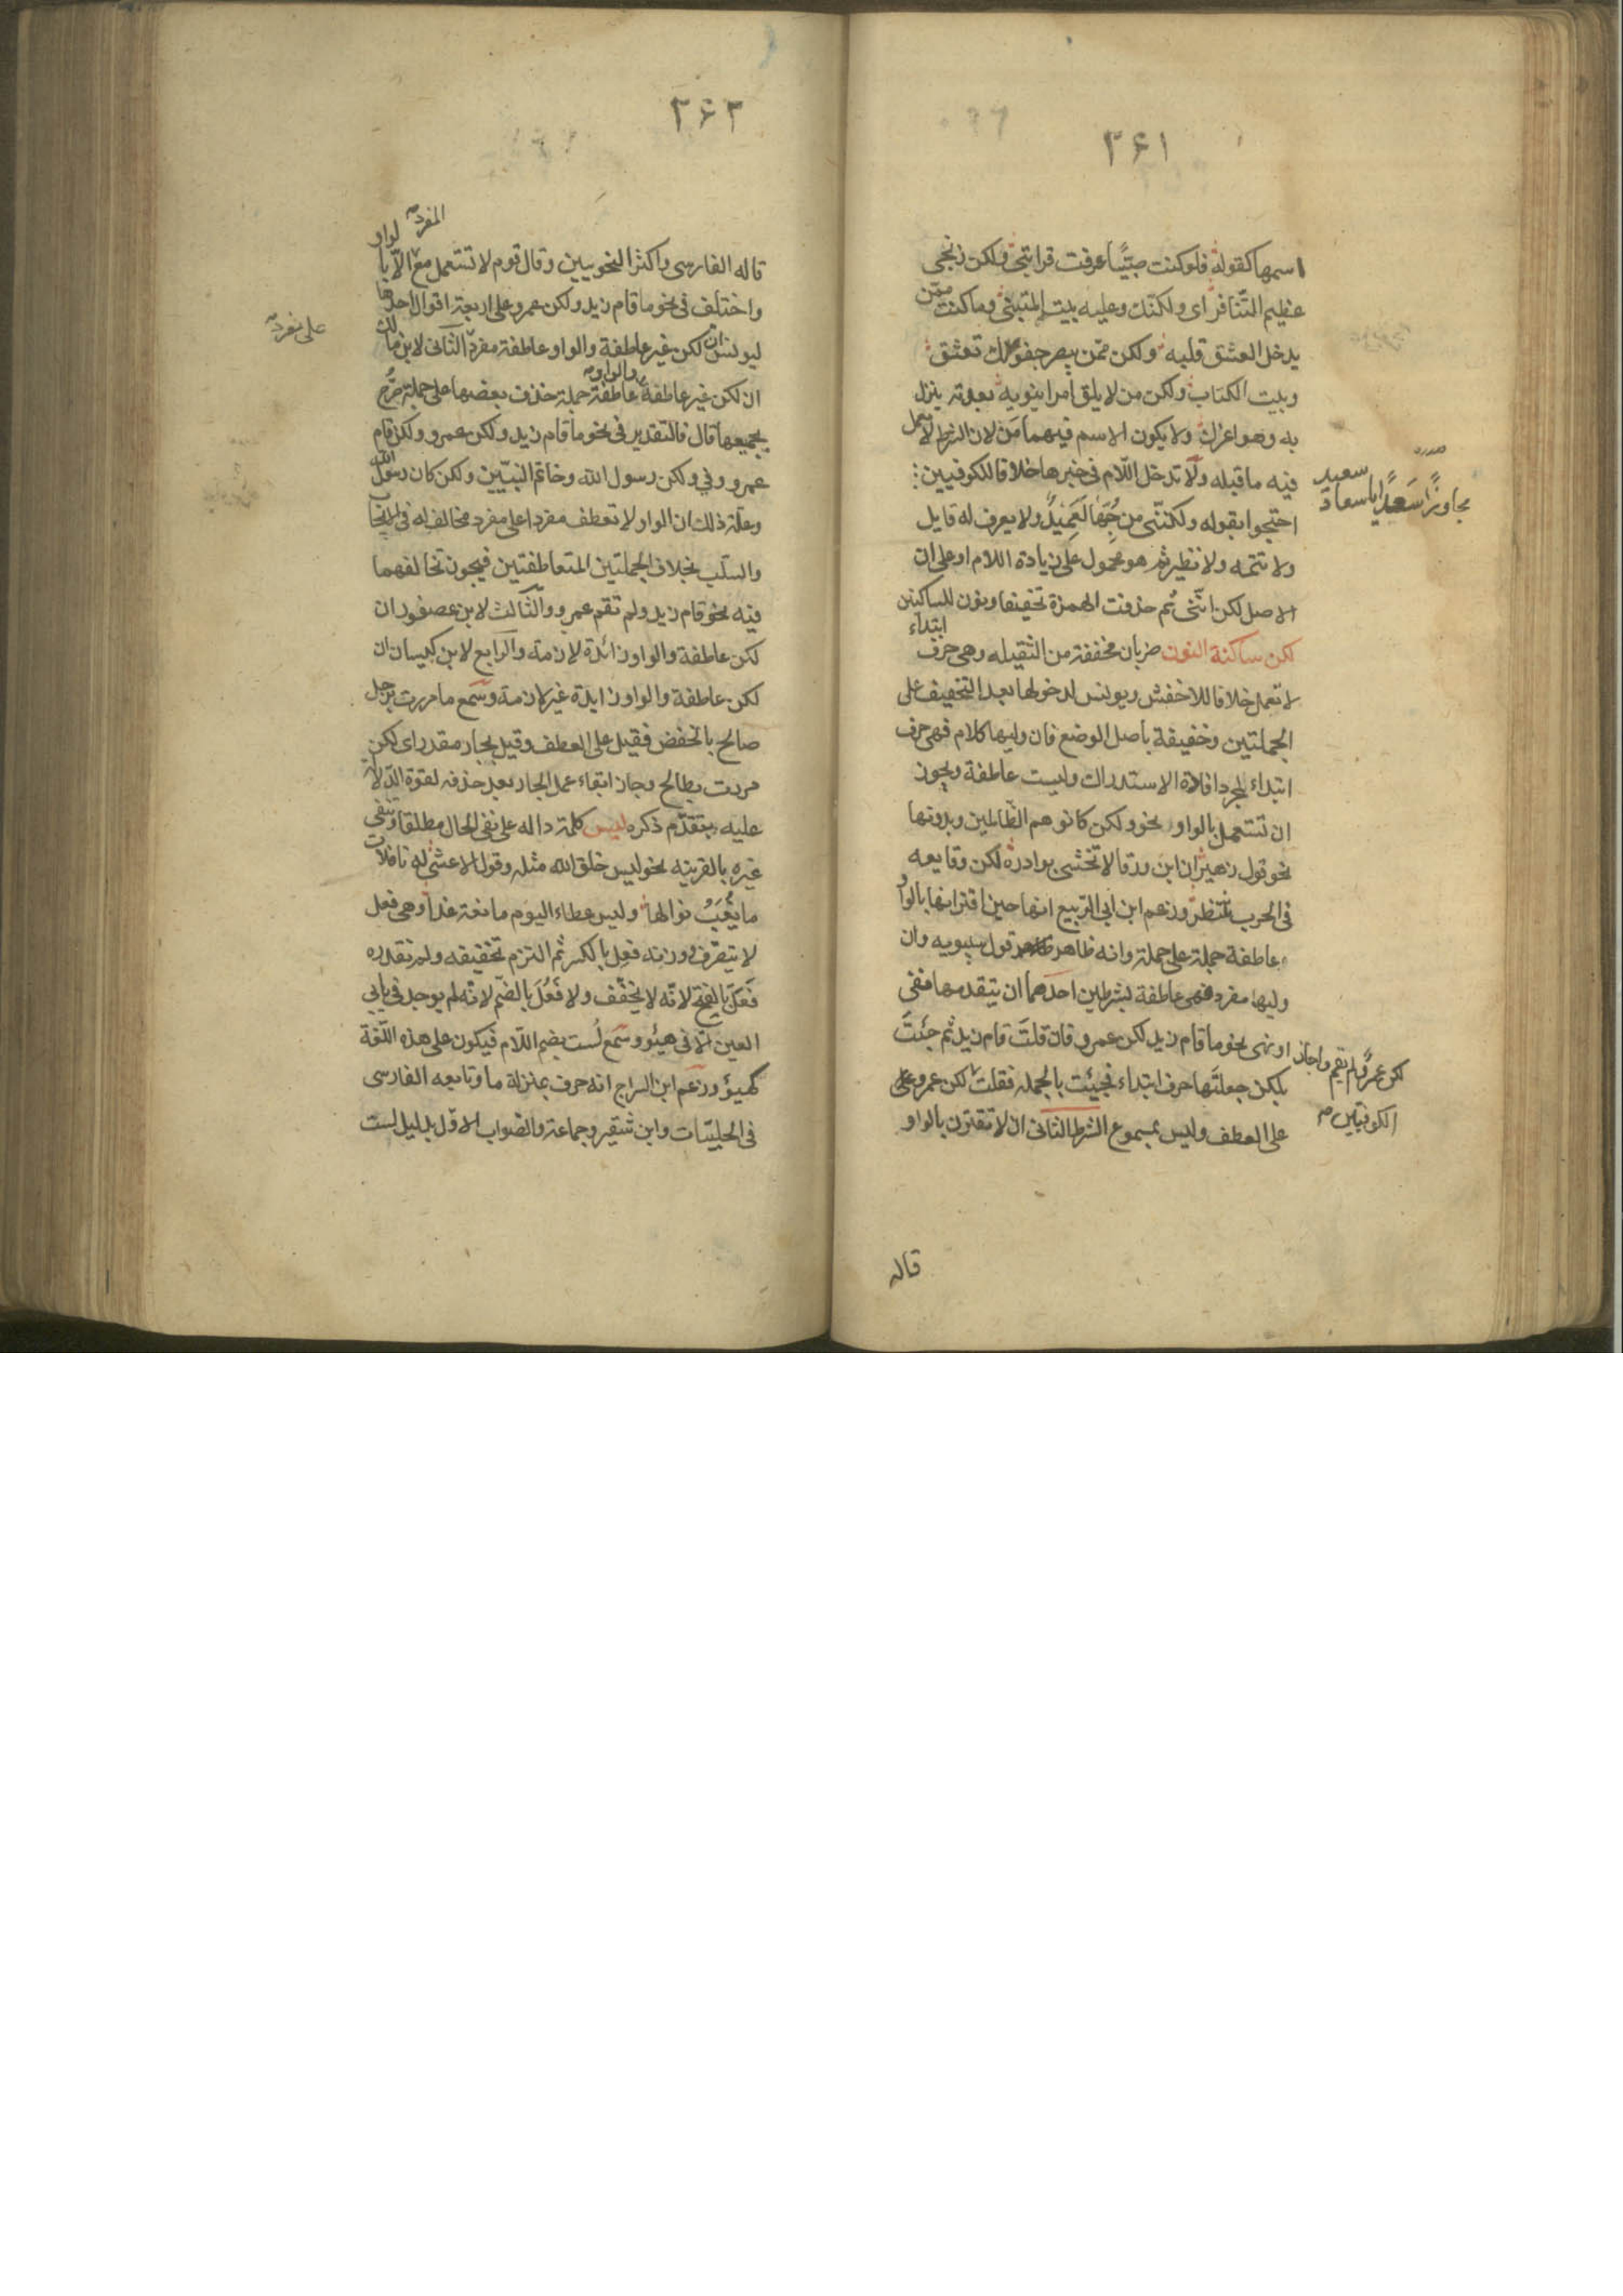 ٣٤١
اسمها كقوله فلو كنت ضبّيًا عرفت قرابتي ولكن زنجي
عظيم التنافر اى ولكنّك وعليه بيت المتبنى وما كنت ممّن
يدخل العشق قلبه ولكن ممّن يبصر جفونك تعشق
وبيت الكتاب ولكن من لا يلق امرا ينوبه بعدته ينزل
به وهو اعزل ولا يكون الاسم فيهما مَن لان الشرط لا يعمل
فيه ما قبله ولا تدخل اللّام فى خبرها خلافا للكوفيين
احتجوا بقوله ولكننى من حُبّها لَعَمِيدُ ولا يعرف له قايل
ولا تتمه ولا نظير ثم هو محمول على زيادة اللام او على ان
الاصل لكن اننى ثم حذفت الهمزة تخفيفا ونون للساكنين
لكن ساكنة النون ضربان مخففة من الثقيله وهى حرف ابتداء
لا تعمل خلافا للاخفش ويونس لدخولها بعد التخفيف على
الجملتين وخفيفة بأصل الوضع فان وليها كلام فهى حرف
ابتداء لمجرد افادة الاستدراك وليست عاطفة ويجوز
ان تستعمل بالواو نحو ولكن كانوهم الظّالمين وبدونها
نحو قول زهير ان ابن ورقا لا تخشى بوادره لكن وقايعه
فى الحرب تنتظر وزعم ابن ابى الربيع انها حين اقترانها بالواو
عاطفة جملة على جملة وانه ظاهر قول سيبويه وان
وليها مفرد فهى عاطفة بشرطين احدهما ان يتقدمها نفى
او نهى نحو ما قام زيد لكن عمرو فان قلتَ قام زيد ثم جئتَ
بلكن جعلتَها حرف ابتداء فجيئت بالجمله فقلت لكن عمرو على
على العطف وليس بمسموع الشرط الثانى ان لا تقترن بالواو
قاله
سعيد
مجاوزًا سَعدً ايا سعاد
لكن عمرو لم يقم واجاز
الكوفيين
٣٤٢
المفرد
قاله الفارسى واكثر النحويين وقال قوم لا تستعمل مع الّا بالواو
واختلف فى نحو ما قام زيد ولكن عمرو على اربعة اقوال احدها
ليونس ان لكن غير عاطفة والواو عاطفة مفرد الثانى لابن مالك
على مفرد
ان لكن غير عاطفة والواو عاطفة جملة حذف بعضها على جملة صُرّح
بجميعها قال فالتقدير فى نحو ما قام زيد ولكن عمرو ولكن قام
عمرو وفي ولكن رسول الله وخاتم النبيّين ولكن كان رسول الله
وعلّة ذلك ان الواو لا تعطف مفردا على مفرد مخالف له فى الايجاب
والسلب بخلاف الجملتين المتعاطفتين فيجوز تخالفهما
فيه نحو قام زيد ولم تقم عمرو والثّالث لابن عصفور ان
لكن عاطفة والواو زائدة لازمة والرابع لابن كيسان ان
لكن عاطفة والواو زايدة غير لازمة وسُمع ما مررت برجل
صالح بالخفض فقيل على العطف وقيل بجار مقدر اى لكن
مررت بطالح وجاز ابقاء عمل الجار بعد حذفه لقوة الدّلالة
عليه بتقدّم ذكره ليس كلمة داله على نفى الحال مطلقا وتنفى
غيره بالقرينه نحو ليس خلق الله مثله وقول الاعشى له نافلات
ما يُغِبّ نوالها وليس عطاء اليوم مانعة غدا وهى فعل
لا يتصرّف وزنه فعِل بالكسر ثم التزم تخفيفه ولم نقدره
فَعَلَ بالفتح لانّه لا يخفّف ولا فَعُلَ بالضّم لانّه لم يوجد فى يايى
العين الّا فى هيئو وسُمع لُست بضم اللّام فيكون على هذه اللّغة
كهيؤ وزعم ابن السراج انه حرف بمنزلة ما وتابعه الفارسى
فى الحلبيّات وابن شقير وجماعة والصّواب الاوّل بدليل لست